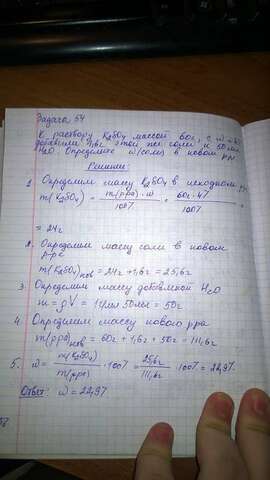 Задача 54
К раствору K₂SO₄ массой 60г, с w
добавили 1,6г этой же соли и 50 мл
H₂O. Определите w(соли) в новом р-ре
Решение:
1. Определим массу K₂SO₄ в исходном
m(K₂SO₄) = m(р-ра) · w / 100% = 60г · 4% / 100% =
= 24г
2. Определим массу соли в новом
р-ре
m(K₂SO₄)нов = 24г + 1,6г = 25,6г
3. Определим массу добавленной H₂O
m = ρV = 1г/мл · 50мл = 50г
4. Определим массу нового р-ра
m(р-ра)нов = 60г + 1,6г + 50г = 111,6г
5. w = m(K₂SO₄) / m(р-ра) · 100% = 25,6г / 111,6г · 100% = 22,9%
Ответ: w = 22,9%